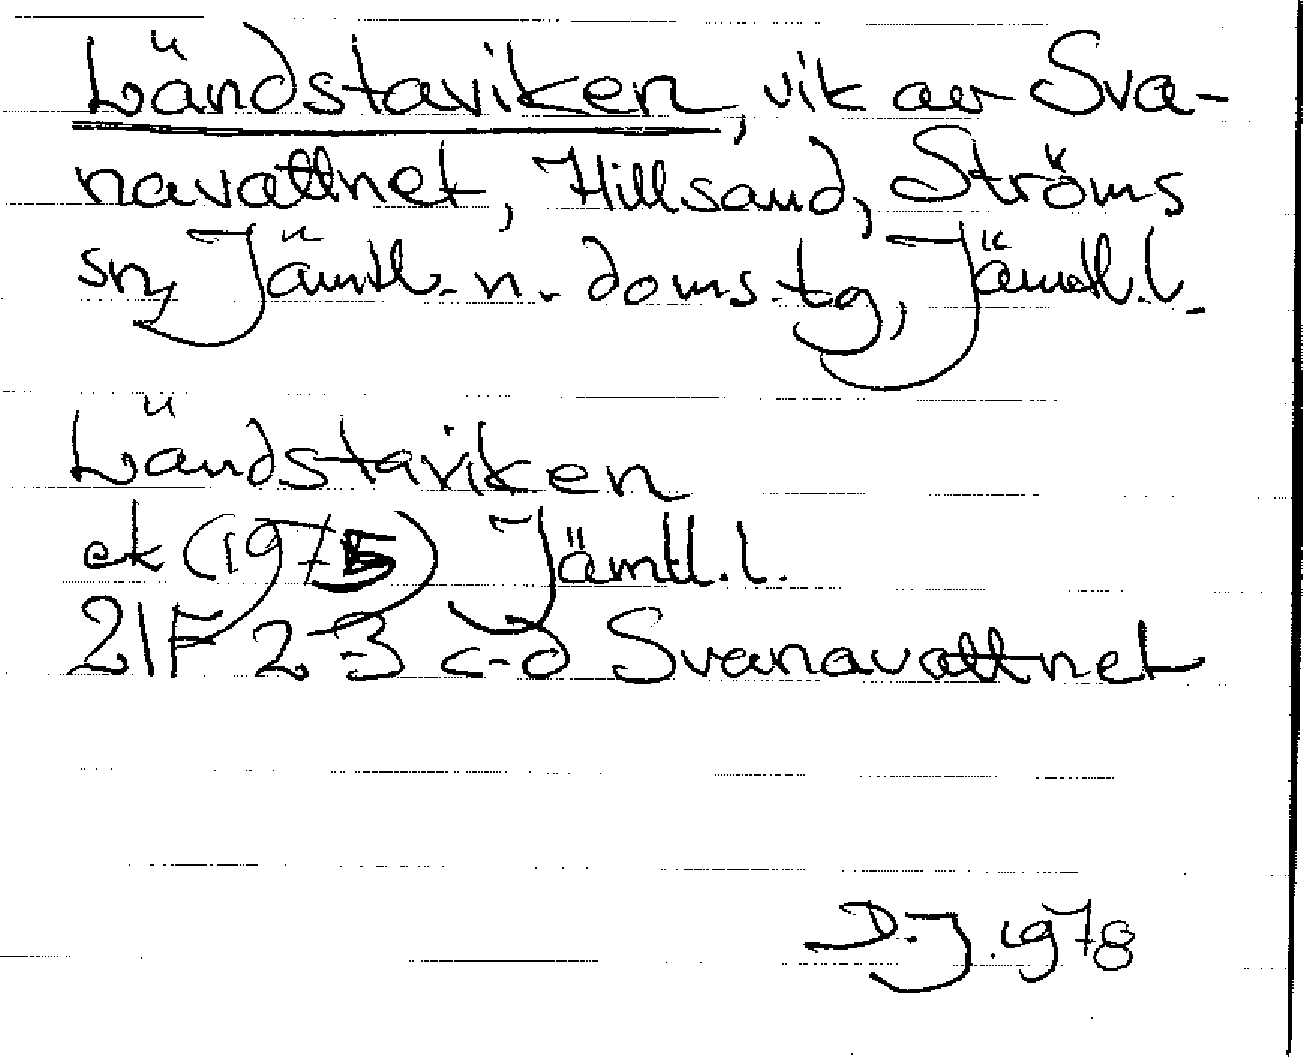 Ländstaviken, vik av Sva-
navattnet, Hillsand, Ströms
sn, Jämtl. n. doms.tg, Jämtl.l.
Ländstaviken
ek (1975) Jämtl.l.
21F 2-3 c-d Svanavattnet
D.J. 1978